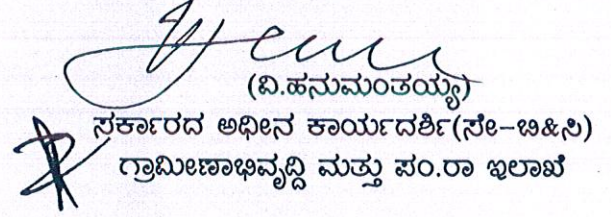 (ವಿ.ಹನುಮಂತಯ್ಯ)
ಸರ್ಕಾರದ ಅಧೀನ ಕಾರ್ಯದರ್ಶಿ(ಸೇ-ಬಿ&ಸಿ)
ಗ್ರಾಮೀಣಾಭಿವೃದ್ಧಿ ಮತ್ತು ಪಂ.ರಾ ಇಲಾಖೆ